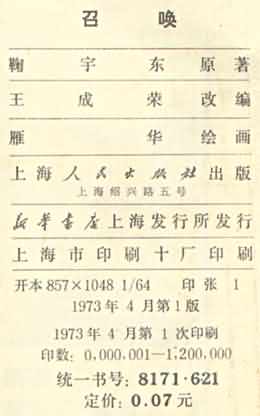 召唤
鞠宇东原著
王成荣改编
雁华绘画
上海人民出版社出版
上海绍兴路五号
新华书店上海发行所发行
上海市印刷十厂印刷
开本 857×1048 1/64 印张 1
1973年4月第1版
1973年4月第1次印刷
印数：0,000,001—1,200,000
统一书号：8171·621
定价：0.07元